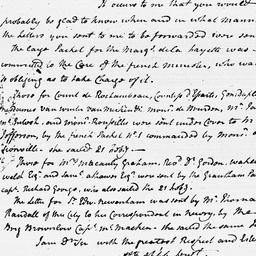 It occurs to me that you would
probably be glad to know when and in what mann
the letters you sent to me to be forwarded were sen
The large Packet for the Marqs. de la fayette was
committed to the Care of the french minister, who wa
obliging as to take Charge of it.
Those for Count de Rochambeau,
James van Winter van
McIntosh, and were sent under Cover to M
Jefferson, by the french Packet No. 1 commanded by Monsr.
she sailed 21
Those for Mrs. Macauly Graham, Revd. Dr. Gordon, Wake
weld Esqr. and Saml. Esqr. were sent by the Grantham Pa
Capt. Richard who also sailed the 21
The letter for Sr. Edw. Newenham was sent by Mr. Thomas
Randall of this City to his Correspondent in Newry, by the
Brig Brownlow Capt. she sailed the same
I am Dr. Sir with the greatest Respect and Este